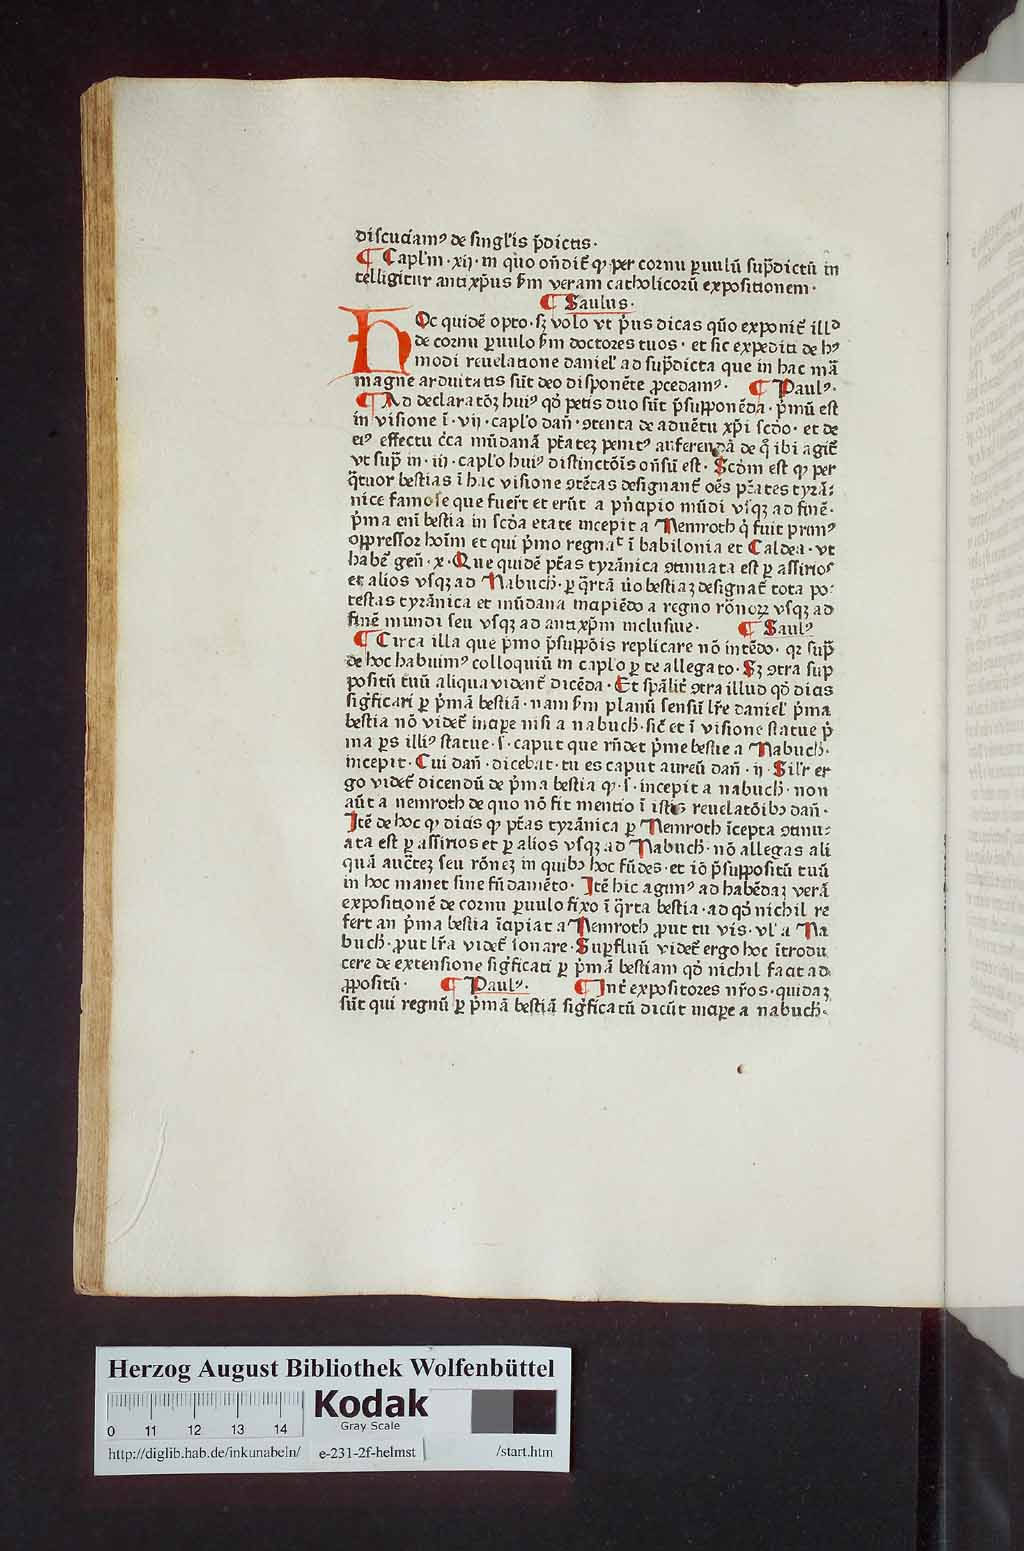 discuciamꝰ de singl'is p̄dictis·
¶ Capl'm · xij · in quo on̄dit̄ ꝙ per cornu ꝑuulū sup̄dictū in
telligitur antixp̄us ẜm veram catholicorū expositionem·
¶ Saulus·
HOc quidē opto· sꝫ volo vt p̄us dicas qūo exponit̄ illᵈ
de cornu ꝑuulo ẜm doctores tuos· et sic expediti de hꝰ
modi reuelatione daniel' ad sup̄dicta que in hac mā
magne arduitatis sūt deo disponēte ꝓcedamꝰ· ¶ Paulꝰ·
¶ Ad declaratōꝫ huiꝰ qd̓ petis duo sūt p̄supponēda· p̄mū est
in visione ī· vij · capl'o dan̄· ꝯtenta de aduētu xp̄i scd̓o· et de
eiꝰ effectu ċca mūdanā ptātez penitꝰ auferendā de q̄ ibi agit̄
vt sup̄ in · iij · capl'o huiꝰ distinctōis on̄sū est· Scd̓m est ꝙ per
q̄tuor bestias ī hac visione ꝯtētas designant̄ oēs ptātes tyrā⸗
nice famose que fuer̄t et erūt a p̄ncipio mūdi vsqꝫ ad finē·
p̄ma eni bestia in scd̓a etate incepit a Nemroth q̄ fuit primꝰ
oppressor hoīm et qui p̄mo regnaᵗ ī babilonia et Caldea· vt
habē gen̄· x· Que quidē ptās tyrānica ꝯtinuata est ꝑ assirios
et alios vsqꝫ ad Nabuch̄· ꝑ q̄rtā ūo bestiaꝫ designat̄ tota po⸗
testas tyrānica et mūdana incipiēdo a regno rōnoꝝ vsqꝫ ad
finē mundi seu vsqꝫ ad antixp̄m inclusiue· ¶ Saulꝰ
¶ Circa illa que p̄mo p̄suppōis replicare nō intēdo· qꝛ sup̄
de hoc habuimꝰ colloquiū in caplo ꝑ te allegato· Sꝫ ꝯtra sup
positū tuū aliqua vident̄ dicēda· Et spālit̄ ꝯtra illud qd̓ dicis
sigficari ꝑ p̄mā bestiā· nam ẜm planū sensū lr̄e daniel' p̄ma
bestia nō videt̄ incipe nisi a nabuch̄· sic̄ et ī visione statue p̄
ma ꝑs illiꝰ statue· s· caput que rn̄det p̄me bestie a Nabuch̄·
incepit· Cui dan̄· dicebat· tu es caput aureū dan̄· ij· Sil'r er
go videt̄ dicendū de p̄ma bestia ꝙ· s· incepit a nabuch̄· non
aūt a nemroth de quo nō fit mentio ī istis reuelatōibꝫ dan̄·
Itē de hoc ꝙ dicis ꝙ ptās tyrānica ꝑ Nemroth īcepta ꝯtinu⸗
ata est ꝑ assirios et ꝑ alios vsqꝫ ad Nabuch̄· nō allegas ali
quā auctez seu rōnez in quibꝫ hoc fūdes· et iō p̄suppositū tuū
in hoc manet sine fūdamēto· Itē hic agimꝰ ad habēdaꝫ verā
expositionē de cornu ꝑuulo fixo ī q̄rta bestia· ad qd̓ nichil re
fert an p̄ma bestia īcipiat a Nemroth ꝓut tu vis· vl' a Na
buch̄· ꝓut lr̄a videt̄ sonare· Superfluū videt̄ ergo hoc ītrodu
cere de extensione sigficati ꝑ p̄mā bestiam qd̓ nichil facit ad
ꝓpositū· ¶ Paulꝰ· ¶ Int̄ expositores nr̄os· quidaꝫ
sūt qui regnū ꝑ p̄mā bestiā sigficatū dicūt incipe a nabuch̄·
Herzog August Bibliothek Wolfenbüttel
Kodak
Gray Scale
0 11 12 13 14
http://diglib.hab.de/inkunabeln/ e-231-2f-helmst /start.htm